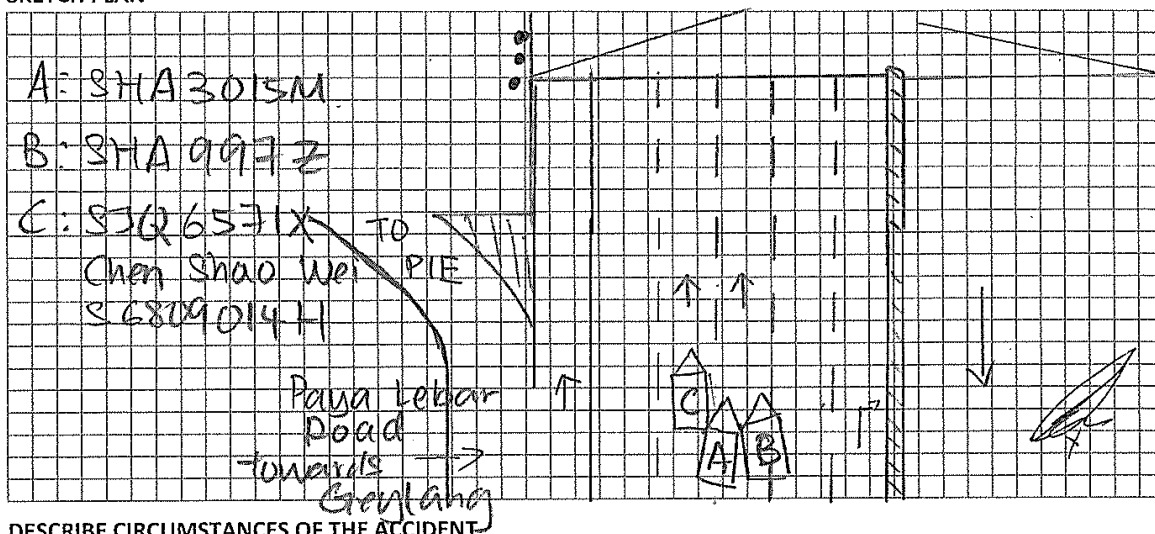 SKETCH PLAN
A: SHA3015M
B: SHA 997Z
C: SJQ6571X
Chen Shao Wei
TO
PIE
Paya Lebar
Road
towards
Geylang
C
A B
DESCRIBE CIRCUMSTANCES OF THE ACCIDENT